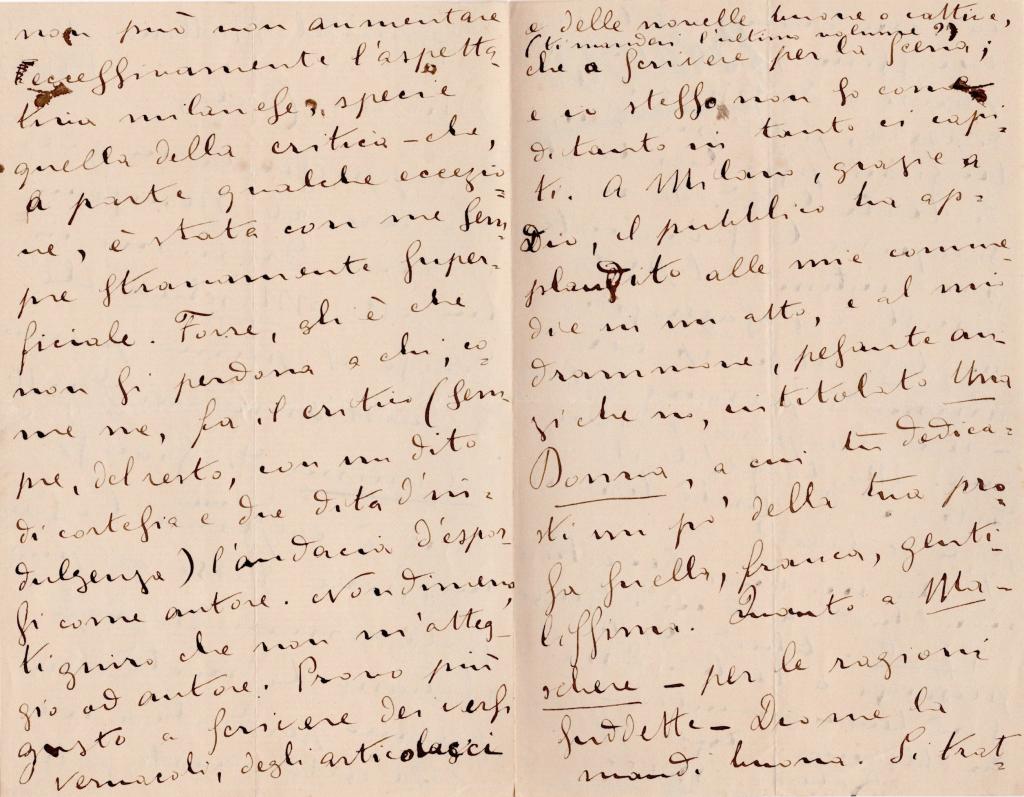 non può non aumentare
eccessivamente l'aspetta-
tiva milanese, specie
quella della critica – che,
a parte qualche eccezio=
ne, è stata con me sem=
pre stranamente super-
ficiale. Forse, gli è che
non si perdona a chi, co-
me me, fa il critico (sem-
pre, del resto, con un dito
di cortesia e due dita d'in-
dulgenza) l'audacia d'espor-
si come autore. Nondimeno,
ti giuro che non m'atteg-
gio ad autore. Provo più
gusto a scrivere dei versi
vernacoli, degli articolacci
e delle novelle buone o cattive,
(ti mandai l'ultimo volume??)
che a scrivere per la scena;
e io stesso non so come
di tanto in tanto ci capi-
ti. A Milano, grazie a
Dio, il pubblico ha ap=
plaudito alle mie comme
die in un atto, e al mio
drammone, pesante an
zi che no, intitolato Una
Donna, a cui tu dedica=
sti un po' della tua pro=
sa snella, franca, genti-
lissima. Quanto a Ma-
schere – per le ragioni
suddette – Dio me la
mandi buona. Si trat=